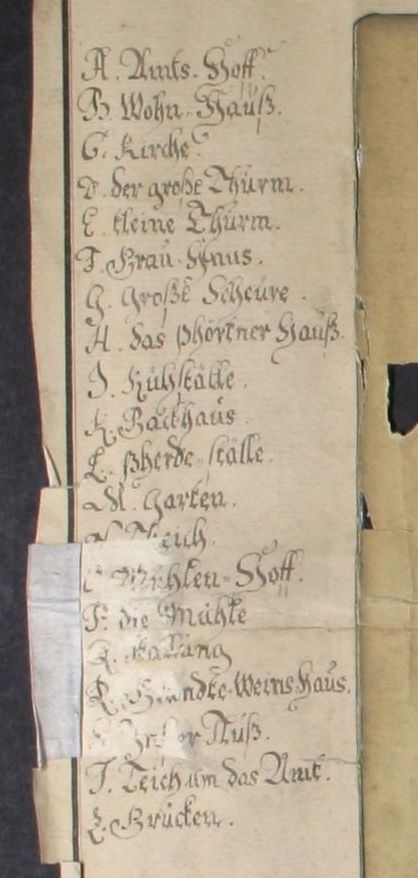 A. Amts-Hoff.
B. Wohn-Hauß.
C. Kirche.
D. der große Thurm.
E. kleine Thurm.
F. Brau-Haus.
G. Große Scheure.
H. das Phörtner Hauß.
I. Kühställe.
K. Backhaus
L. Pherde-ställe.
M. Garten.
Teich.
Mühlen-Hoff.
P. die Mühle
R. Haus.
T. Teich um das Amt.
Brücken.